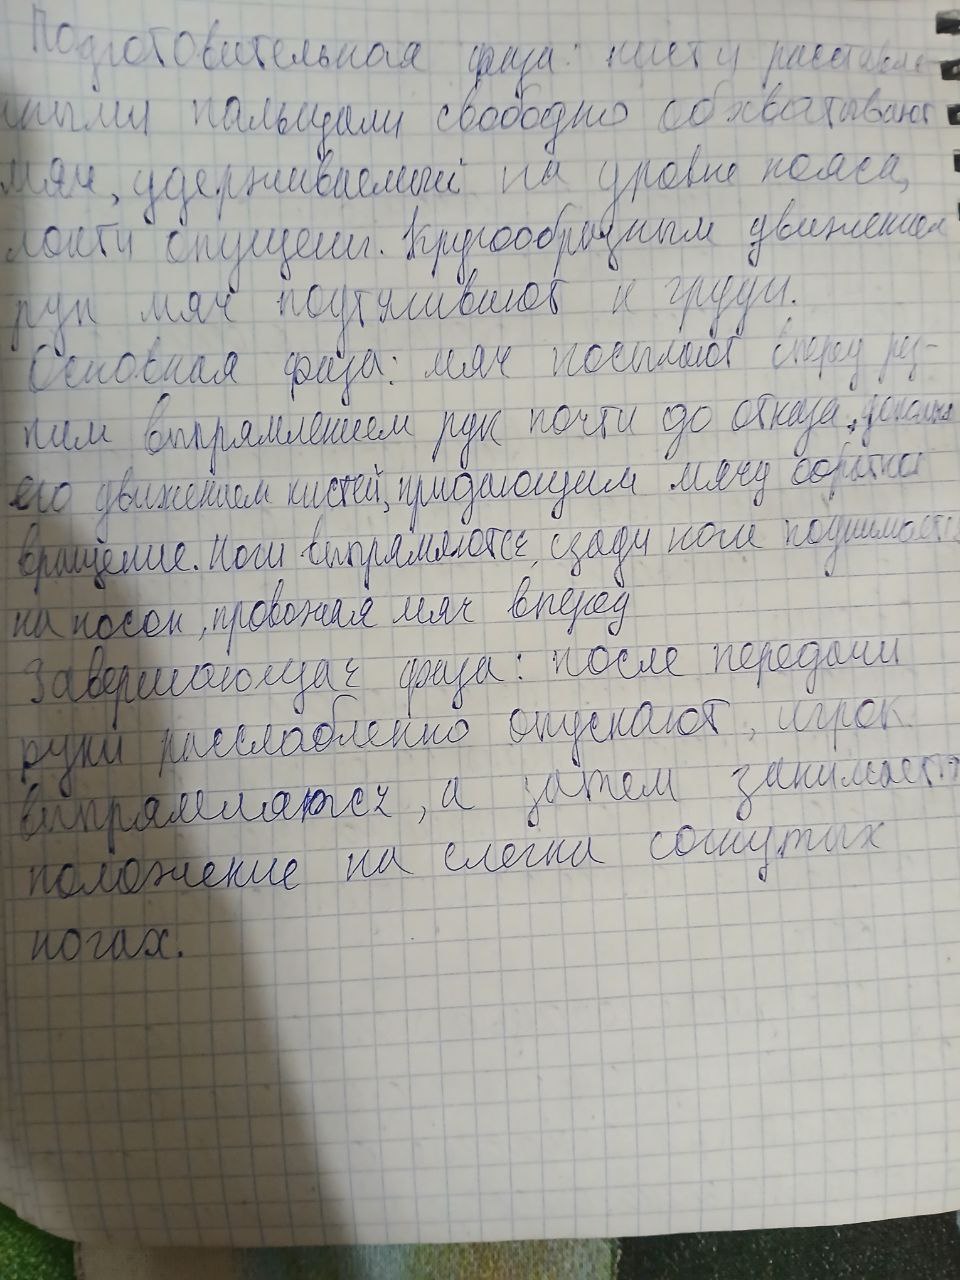 Подготовительная фаза: кисти расставлен-
ными пальцами свободно обхватывают
мяч, удерживаемый на уровне пояса,
локти опущены. Кругообразным движением
рук мяч подтягивают к груди.
Основная фаза: мяч посылают вперед рез-
ким выпрямлением рук почти до отказа, дополняя
его движением кистей, придающим мячу обратное
вращение. Ноги выпрямляются, сзади ноги поднимаются
на носок, провожая мяч вперед
Завершающая фаза: после передачи
руки расслабленно опускают, игрок
выпрямляются, а затем занимает
положение на слегка согнутых
ногах.